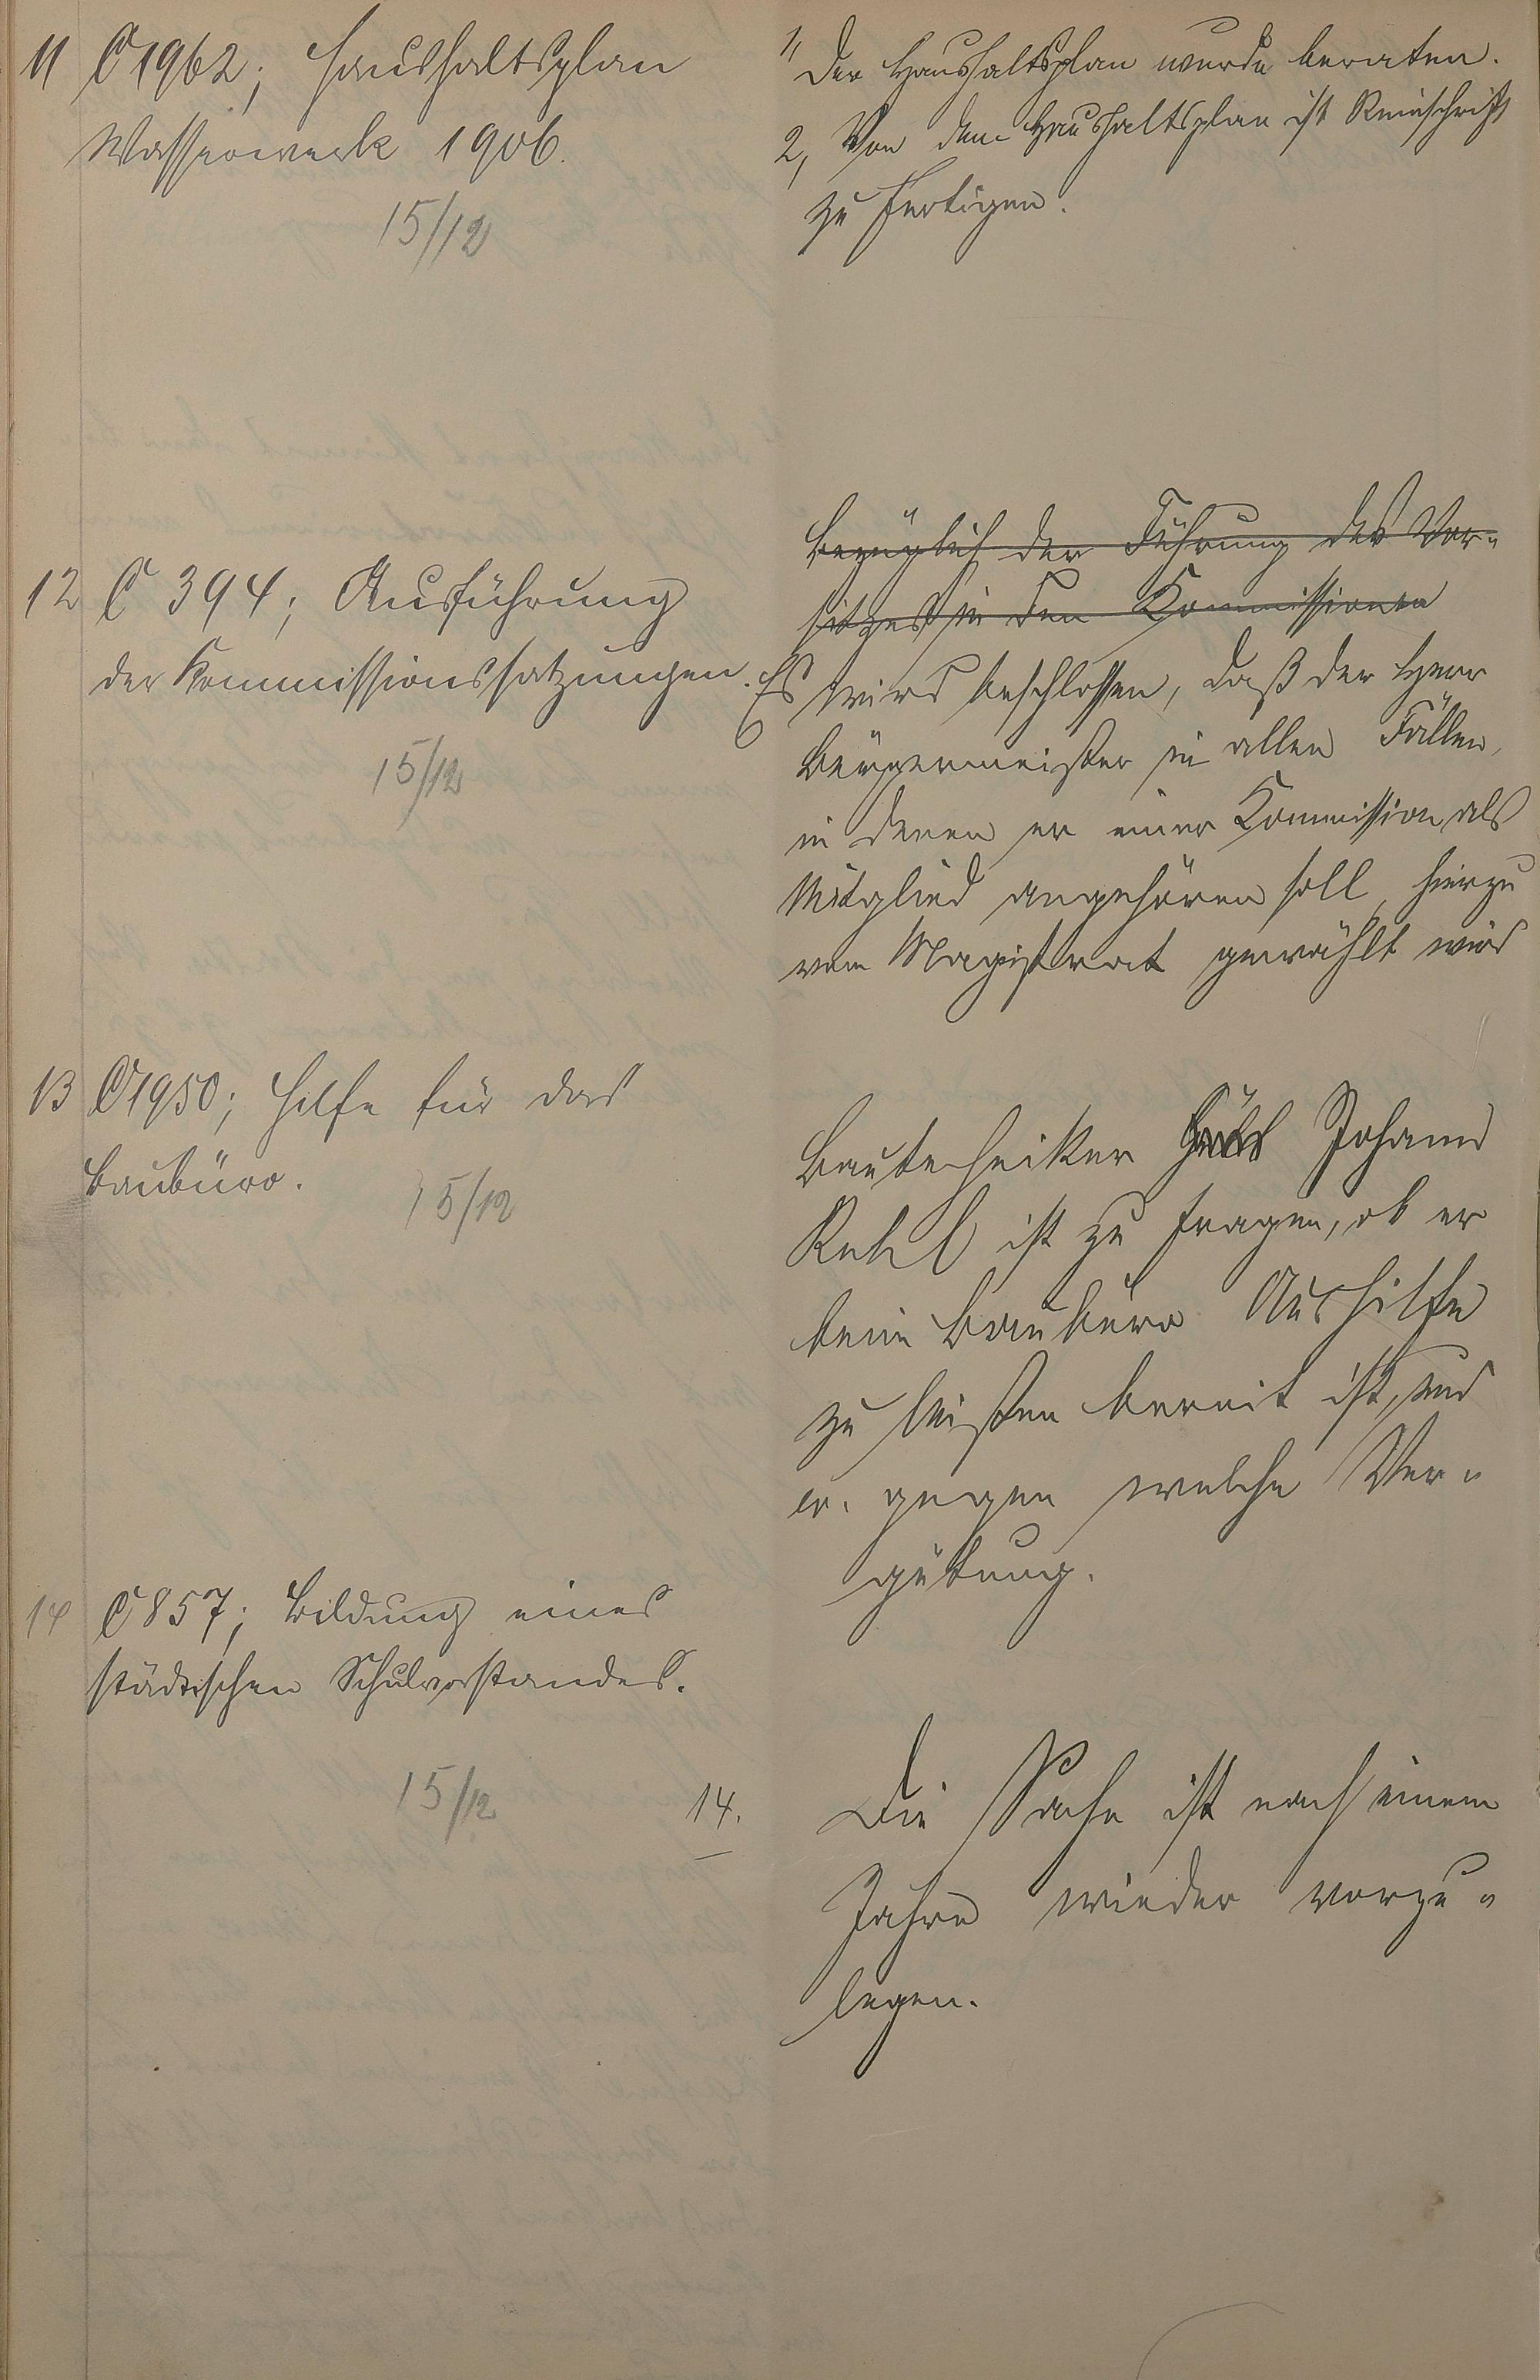 11 C 1962; Haushaltsplan
Wasserwerk 1906.
15/12
1, Der Haushaltsplan wurde beraten.
2, Von dem Haushaltsplan ist Reinschrift
zu fertigen.
12 C 394; Ausführung
der Kommissionssatzungen.
15/12
Bezüglich der Führung des Vor-
sitzes in den Kommissionen
Es wird beschlossen, daß der Herr
Bürgermeister in allen Fällen,
in denen er einer Kommission als
Mitglied angehören soll, hierzu
vom Magistrat gewählt wird
13 C 1950; Hilfe für das
Baubüro.
15/12
Bautechniker Johann
ist zu fragen, ob er
beim Baubüro Aushilfe
zu leisten bereit ist, und
ev. gegen welche Ver-
gütung.
14 C 857; Bildung eines
städtischen Schulvorstandes.
15/12
14. Die Sache ist nach einem
Jahre wieder vorzu-
legen.